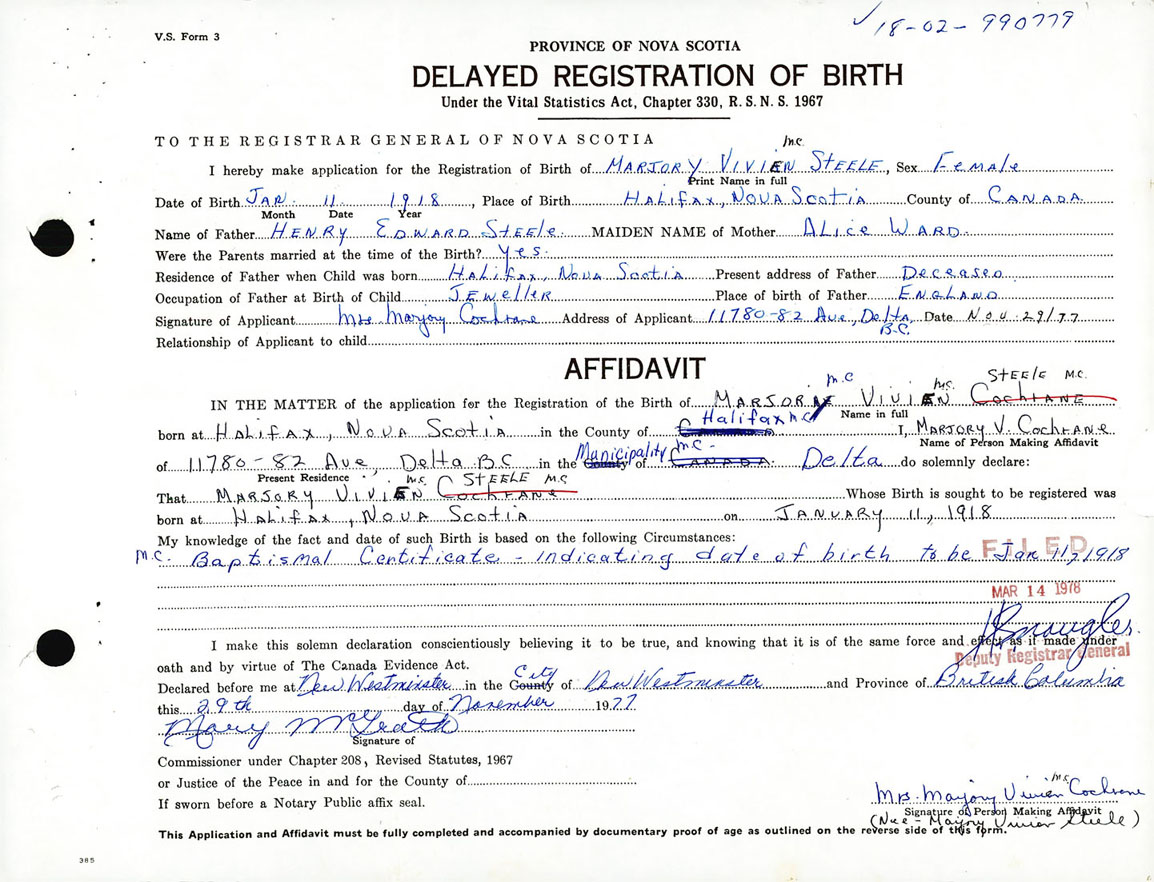 ✓ 18-02-990779
V.S. Form 3
PROVINCE OF NOVA SCOTIA
DELAYED REGISTRATION OF BIRTH
Under the Vital Statistics Act, Chapter 330, R.S.N.S. 1967
TO THE REGISTRAR GENERAL OF NOVA SCOTIA
m.c.
I hereby make application for the Registration of Birth of MARJORY VIVIEN STEELE, Sex Female
Print Name in full
Date of Birth JAN. 11 1918, Place of Birth HALIFAX, NOVA SCOTIA County of CANADA
Month Date Year
Name of Father HENRY EDWARD STEELE MAIDEN NAME of Mother ALICE WARD
Were the Parents married at the time of the Birth? Yes.
Residence of Father when Child was born HALIFAX, NOVA SCOTIA Present address of Father DECEASED
Occupation of Father at Birth of Child JEWELLER Place of birth of Father ENGLAND
Signature of Applicant Mrs Marjory Cochrane Address of Applicant 11780-82 Ave, Delta B.C. Date NOV 29/77
Relationship of Applicant to child
AFFIDAVIT
m.c m.c. STEELE M.C.
IN THE MATTER of the application for the Registration of the Birth of MARJORY VIVIEN COCHRANE
Halifax m.c Name in full
born at HALIFAX, NOVA SCOTIA in the County of I, MARJORY V. COCHRANE
Name of Person Making Affidavit
Municipality m.c.
of 11780-82 Ave, Delta BC in the County of CANADA Delta do solemnly declare:
Present Residence m.c. STEELE M.C
That MARJORY VIVIEN COCHRANE Whose Birth is sought to be registered was
born at HALIFAX, NOVA SCOTIA on JANUARY 11, 1918
My knowledge of the fact and date of such Birth is based on the following Circumstances:
m.c. Baptismal Certificate - indicating date of birth to be Jan 11, 1918
FILED
MAR 14 1978
I make this solemn declaration conscientiously believing it to be true, and knowing that it is of the same force and effect as if made under
Deputy Registrar General
oath and by virtue of The Canada Evidence Act.
City
Declared before me at New Westminster in the County of New Westminster and Province of British Columbia
this 29th day of November 1977
Mary McGrath
Signature of
Commissioner under Chapter 208, Revised Statutes, 1967
or Justice of the Peace in and for the County of
If sworn before a Notary Public affix seal.
m.c.
Mrs. Marjory Vivien Cochrane
Signature of Person Making Affidavit
(Nee - Marjory Vivien Steele)
This Application and Affidavit must be fully completed and accompanied by documentary proof of age as outlined on the reverse side of this form.
385